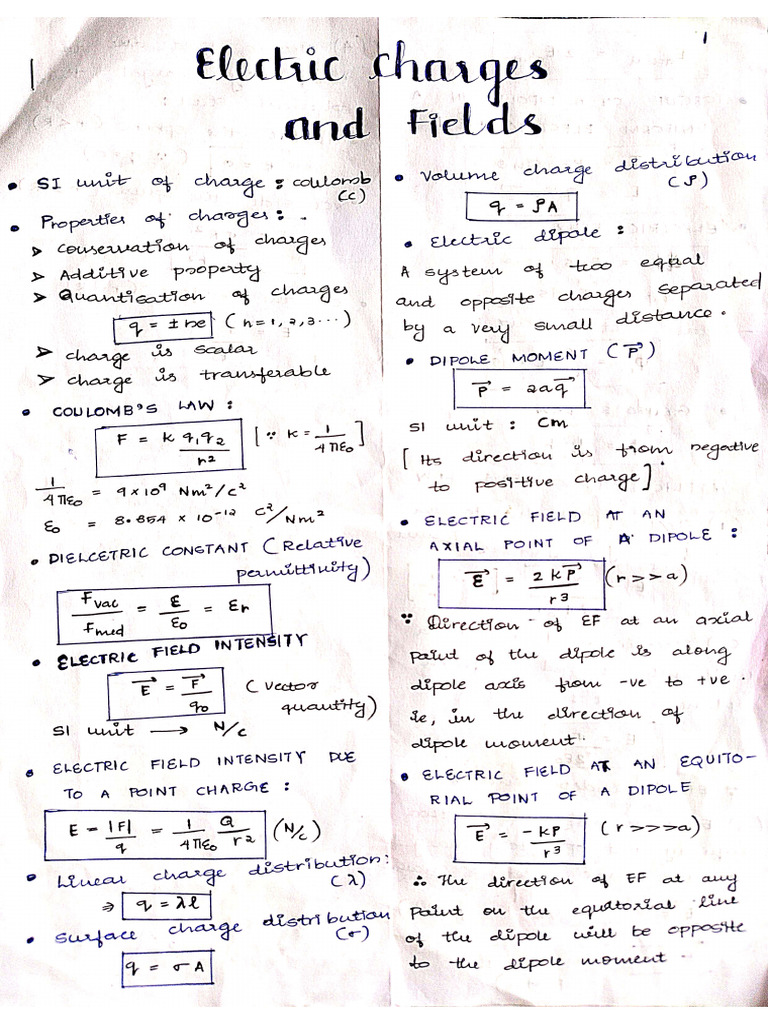 Electric Charges
and Fields
1
• SI unit of charge : coulomb
(C)
• Properties of charges :
➤ Conservation of charges
➤ Additive property
➤ Quantisation of charges
q = ± ne (n = 1, 2, 3 ...)
➤ charge is scalar
➤ charge is transferable
• COULOMB'S LAW :
F = k q₁q₂/r² [∵ k = 1/4πε₀]
1/4πε₀ = 9 × 10⁹ Nm²/C²
ε₀ = 8.854 × 10⁻¹² C²/Nm²
• DIELCETRIC CONSTANT (Relative
permittivity)
Fvac/Fmed = ε/ε₀ = εr
• ELECTRIC FIELD INTENSITY
E⃗ = F⃗/q₀ (vector
quantity)
SI unit → N/C
• ELECTRIC FIELD INTENSITY DUE
TO A POINT CHARGE :
E = |F|/q = 1/4πε₀ Q/r² (N/C)
• Linear charge distribution :
(λ)
⇒ q = λl
• Surface charge distribution
(σ)
q = σA
• Volume charge distribution
(ρ)
q = ρA
• Electric dipole :
A system of two equal
and opposite charges separated
by a very small distance.
• DIPOLE MOMENT (P⃗)
P⃗ = 2aq⃗
SI unit : Cm
[Its direction is from negative
to positive charge].
• ELECTRIC FIELD AT AN
AXIAL POINT OF A DIPOLE :
E⃗ = 2kP⃗/r³ (r >> a)
∵ Direction of EF at an axial
point of the dipole is along
dipole axis from -ve to +ve.
ie, in the direction of
dipole moment.
• ELECTRIC FIELD AT AN EQUITO-
RIAL POINT OF A DIPOLE
E⃗ = -kP/r³ (r >>> a)
∴ The direction of EF at any
point on the equitorial line
of the dipole will be opposite
to the dipole moment.